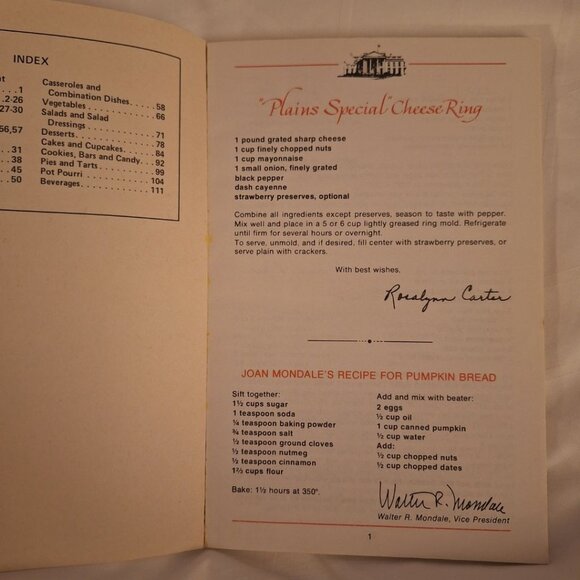 INDEX
nt
1
2-26
27-30
56,57
31
38
45
50
Casseroles and
Combination Dishes. . . . . 58
Vegetables . . . . . . . . . . . . . 66
Salads and Salad
Dressings . . . . . . . . . . . . 71
Desserts. . . . . . . . . . . . . . . 78
Cakes and Cupcakes. . . . . 84
Cookies, Bars and Candy. . 92
Pies and Tarts . . . . . . . . . . 99
Pot Pourri . . . . . . . . . . . . 104
Beverages. . . . . . . . . . . . . 111
"Plains Special" Cheese Ring
1 pound grated sharp cheese
1 cup finely chopped nuts
1 cup mayonnaise
1 small onion, finely grated
black pepper
dash cayenne
strawberry preserves, optional
Combine all ingredients except preserves, season to taste with pepper.
Mix well and place in a 5 or 6 cup lightly greased ring mold. Refrigerate
until firm for several hours or overnight.
To serve, unmold, and if desired, fill center with strawberry preserves, or
serve plain with crackers.
With best wishes,
Rosalynn Carter
JOAN MONDALE'S RECIPE FOR PUMPKIN BREAD
Sift together:
1½ cups sugar
1 teaspoon soda
¼ teaspoon baking powder
¾ teaspoon salt
½ teaspoon ground cloves
½ teaspoon nutmeg
½ teaspoon cinnamon
1⅔ cups flour
Bake: 1½ hours at 350°.
Add and mix with beater:
2 eggs
½ cup oil
1 cup canned pumpkin
½ cup water
Add:
½ cup chopped nuts
½ cup chopped dates
Walter R. Mondale
Walter R. Mondale, Vice President
1